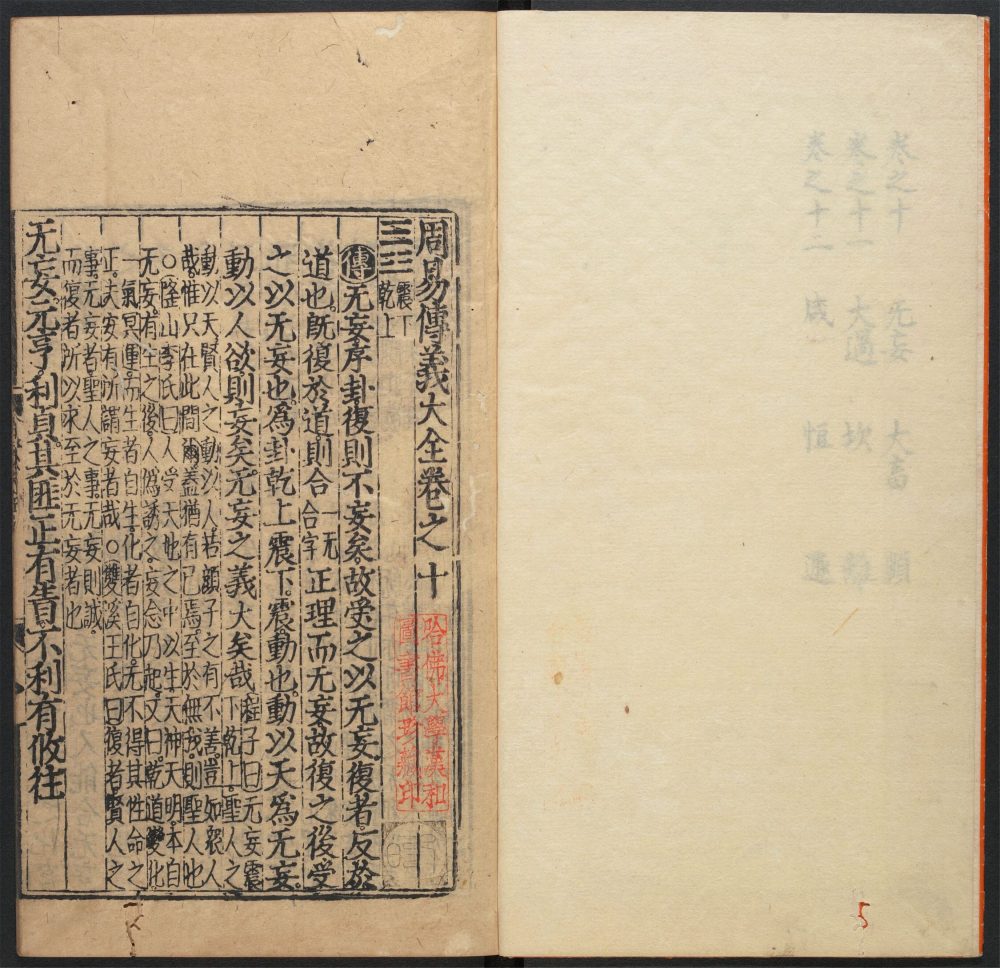 卷之十 无妄 大畜 頤
卷之十一 大過 坎 離
卷之十二 咸 恒 遯
5
周易傳義大全卷之十
哈佛大學漢和
圖書館珍藏印
震下
乾上
傳无妄序卦復則不妄矣故受之以无妄復者反於
道也既復於道則合
一无
合字
正理而无妄故復之後受
之以无妄也爲卦乾上震下震動也動以天爲无妄
動以人欲則妄矣无妄之義大矣哉
程子曰无妄震
下乾上聖人之
動以天賢人之動以人若顔子之有不善豈如衆人
哉惟只在此間爾蓋猶有己焉至於無我則聖人也
○隆山李氏曰人受天地之中以生天神天明本自
无妄有生之後人僞誘之妄念乃起又曰乾道變化
一氣冥運而生者自生化者自化无不得其性命之
正夫安有所謂妄者哉○雙溪王氏曰復者賢人之
事无妄者聖人之事无妄則誠
而復者所以求至於无妄者也
无妄元亨利貞其匪正有眚不利有攸往